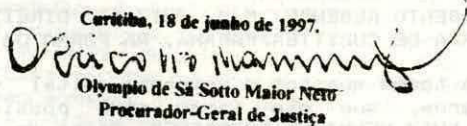 Curitiba, 18 de junho de 1997.
Olympio de Sá Sotto Maior Neto
Procurador-Geral de Justiça